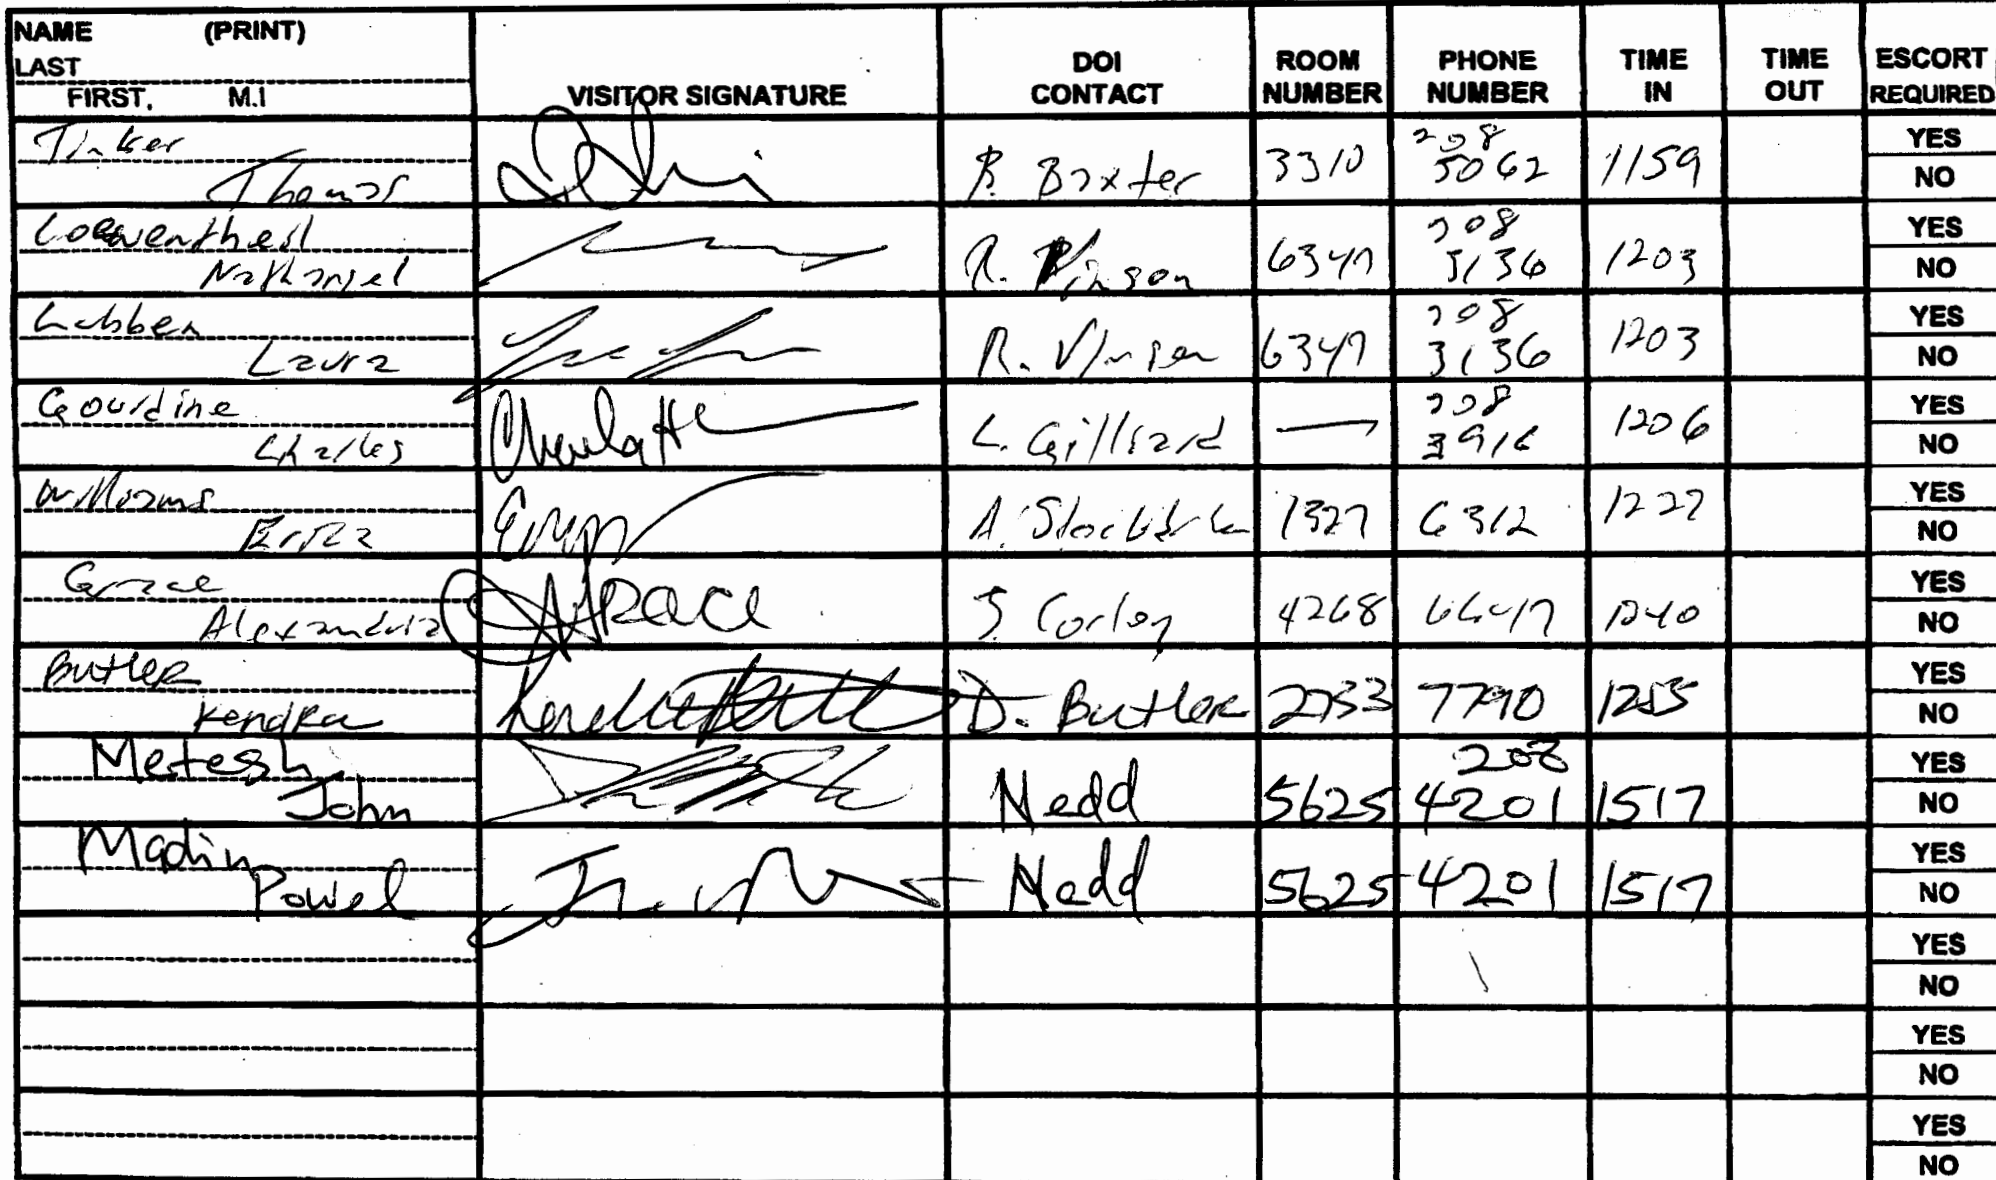 NAME (PRINT)
LAST
FIRST, M.I
VISITOR SIGNATURE
DOI CONTACT
ROOM NUMBER
PHONE NUMBER
TIME IN
TIME OUT
ESCORT REQUIRED
Tinker
Thomas
B. Baxter 3310 208 5062 1159 YES NO
Loewentheil
Nathaniel
R. Vinson 6347 208 3136 1203 YES NO
Lubben
Laura
R. Vinson 6347 208 3136 1203 YES NO
Gourdine
Charles
L. Gilliard — 208 3916 1206 YES NO
Williams
A. 1327 6312 1227 YES NO
Grace
Alexandria
AGRACE
J Corley 4268 6647 1240 YES NO
Butler
Kendra
D. Butler 2733 7790 1255 YES NO
Metesh
John
Nedd 5625 208 4201 1517 YES NO
Madin
Powel
Nedd 5625 4201 1517 YES NO
YES
NO
YES
NO
YES
NO